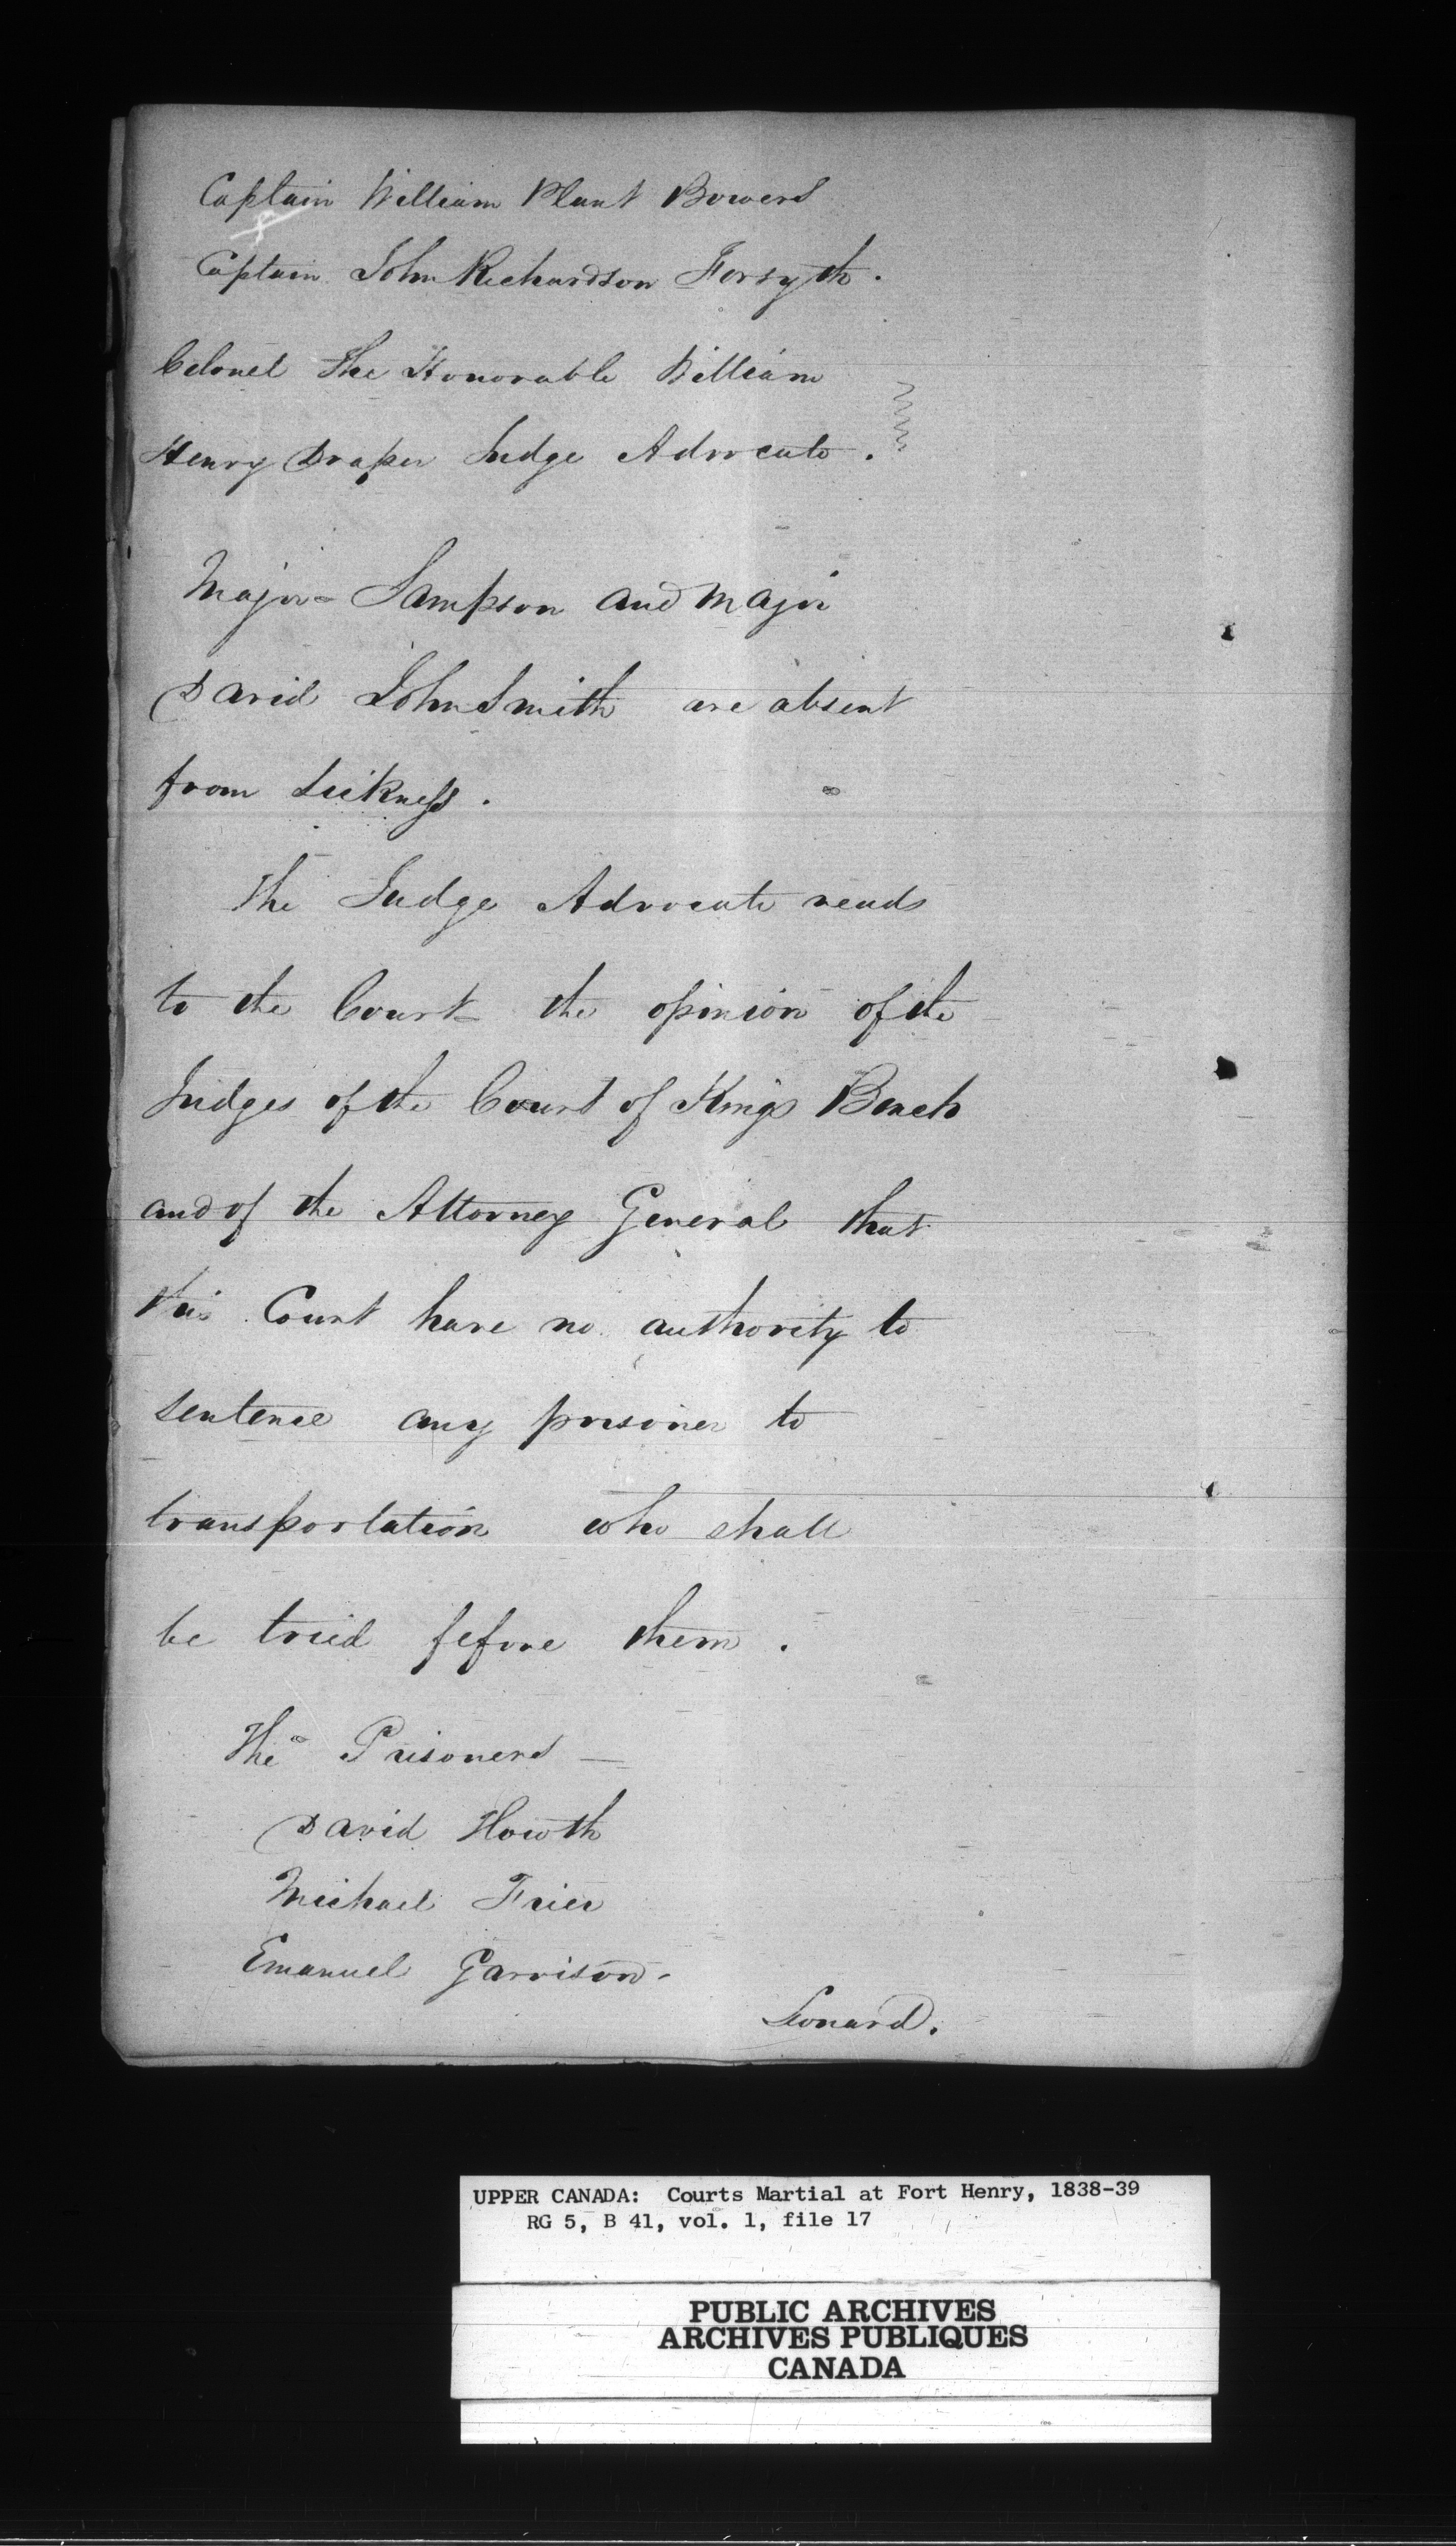 Captain William Plant Bowers
Captain John Richardson Forsyth.
Colonel The Honorable William
Henry Draper Judge Advocate.
Major Sampson and Major
David John Smith are absent
from Sickness.
The Judge Advocate reads
to the Court the opinion of the
Judges of the Court of Kings Bench
and of the Attorney General that
this Court have no authority to
sentence any prisoner to
transportation who shall
be tried before them.
The Prisoners —
David Howth
Michael Frier
Emanuel Garrison.
Leonard.
UPPER CANADA: Courts Martial at Fort Henry, 1838-39
RG 5, B 41, vol. 1, file 17
PUBLIC ARCHIVES
ARCHIVES PUBLIQUES
CANADA